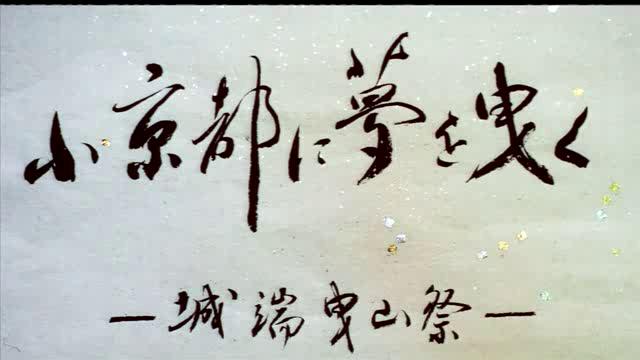 小京都に夢を曳く
―城端曳山祭―